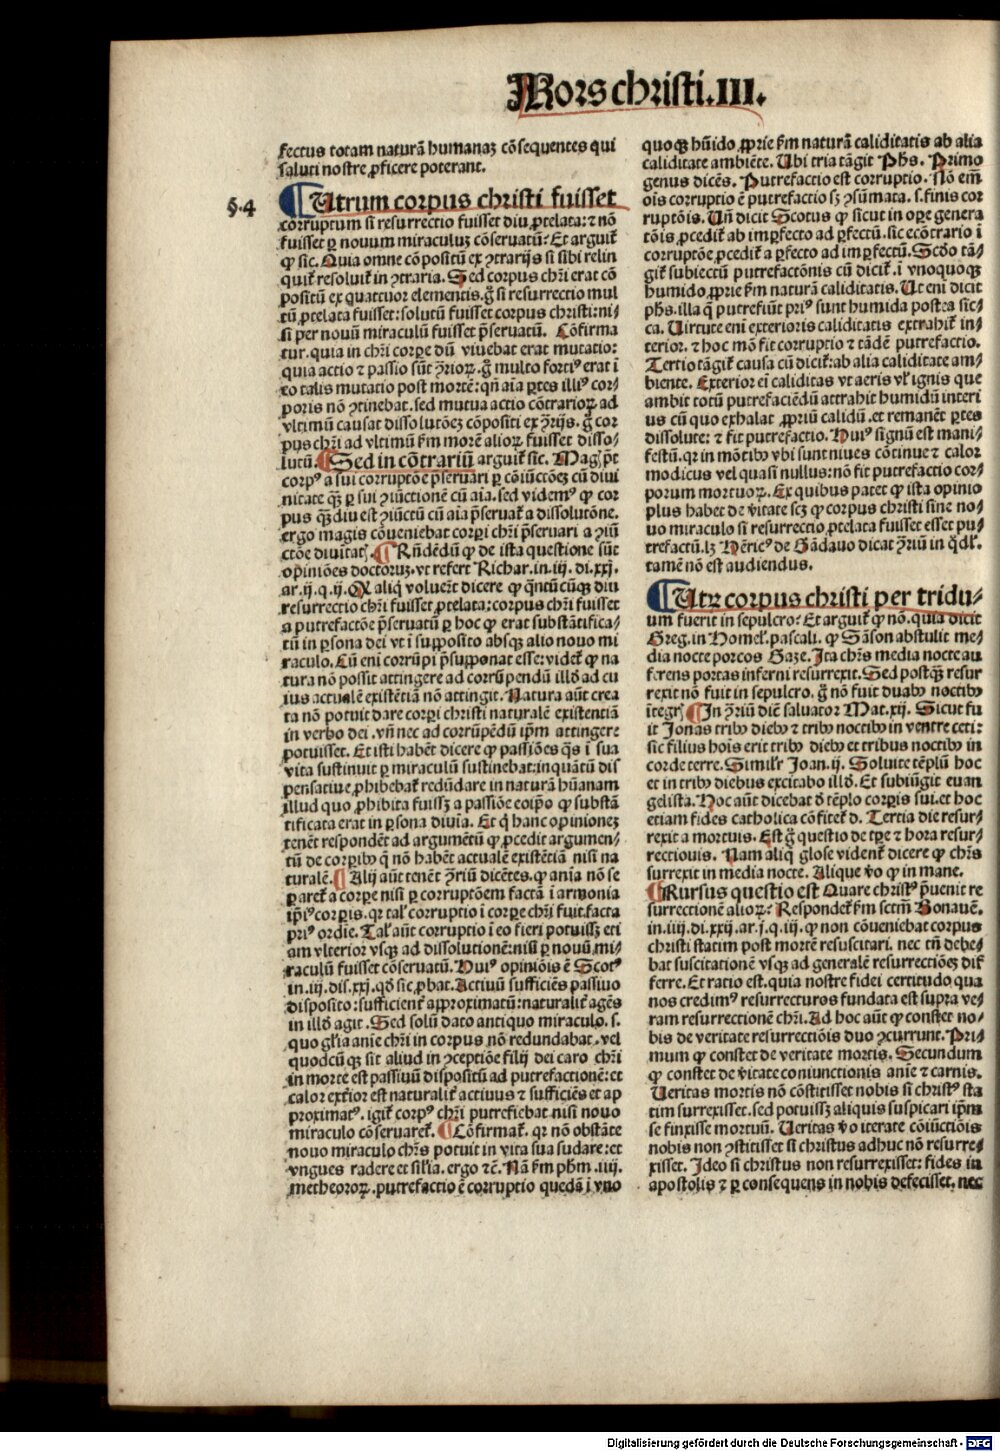 Mors christi.III.
fectus totam naturã humanaȝ cõsequentes qui
saluti nostre ꝓficere poterant.
§.4
¶Utrum corpus christi fuisset
corruptum si resurrectio fuisset diu ꝓtelata: ⁊ nõ
fuisset ꝑ nouum miraculuȝ cõseruatũ? Et arguit̃
ꝙ sic. Quia omne cõpositũ ex ↄtrarijs si sibi relin
quit̃ resoluit̃ in ↄtraria. Sed corpus chr̃i erat cõ
positũ ex quattuor elementis. g̃ si resurrectio mul
tũ ꝓtelata fuisset: solutũ fuisset corpus christi: ni⸗
si per nouũ miraculũ fuisset p̃seruatũ. Cõfirma
tur. quia in chr̃i corꝑe dũ viuebat erat mutatio:
quia actio ⁊ passio sũt ↄ̃rioꝝ. g̃ multo fortiꝰ erat ĩ
eo talis mutatio post mortẽ: qñ aĩa ꝑtes illiꝰ cor⸗
poris nõ ↄtinebat. sed mutua actio cõtrarioꝝ ad
vltimũ causat dissolutõeȝ cõpositi ex ↄ̃rijs. g̃ cor
pus chr̃i ad vltimũ ẜm morẽ alioꝝ fuisset disso⸗
lutũ. ¶Sed in cõtrariũ arguit̃ sic. Mag̃ p̃t
corpꝰ a sui corruptõe p̃seruari ꝑ cõiũctõeȝ cũ diui
nitate qȝ̃ ꝑ sui ↄiũctionẽ cũ aĩa. sed videmꝰ ꝙ cor
pus qȝ̃diu est ↄiũctũ cũ aĩa p̃seruat̃ a dissolutõne.
ergo magis cõueniebat corꝑi chr̃i p̃seruari a ↄiũ
ctõe diuitat̃. ¶Rñdẽdũ ꝙ de ista questione sũt
opiniões doctoruȝ. vt refert Richar. in. iij. di. xxj.
ar. ij. q. ij. Q aliq̃ voluer̃t dicere ꝙ q̃ntũcũqȝ diu
resurrectio chr̃i fuisset ꝓtelata: corpus chr̃i fuisset
a putrefactõe p̃seruatũ ꝑ hoc ꝙ erat substãtifica⸗
tũ in ꝑsona dei vt ĩ supposito absqȝ alio nouo mi
raculo. Cũ eni corrũpi p̃supponat esse: videt̃ ꝙ na
tura nõ possit attingere ad corrũpendũ illđ ad cu
ius actualẽ existẽtiã nõ attingit. Natura aũt crea
ta nõ potuit dare corꝑi christi naturalẽ existentiã
in verbo dei. vñ nec ad corrũpẽdũ ip̃m attingere
potuisset. Et isti habẽt dicere ꝙ passiões q̃s ĩ sua
vita sustinuit ꝑ miraculũ sustinebat: inquãtũ dis
pensatiue ꝓhibebat̃ redũdare in naturã hũanam
illud quo ꝓhibita fuissȝ a passiõe eoip̃o ꝙ substã
tificata erat in ꝑsona diuĩa. Et q̃ hanc opinioneȝ
tenẽt respondẽt ad argumẽtũ ꝙ ꝓcedit argumen⸗
tũ de corꝑibꝰ q̃ nõ habẽt actualẽ existẽtiã nisi na
turalẽ. ¶Alij aũt tenẽt ↄ̃riũ dicẽtes. ꝙ anĩa nõ se
ꝑaret̃ a corꝑe nisi ꝑ corruptõem factã ĩ armonia
ip̃iꝰ corꝑis. qr tal̃ corruptio ĩ corꝑe chr̃i fuit facta
priꝰ ordĩe. Tal̃ aũt corruptio ĩ eo fieri potuissȝ eti
am vlterior vsqȝ ad dissolutionẽ: nisi ꝑ nouũ mi⸗
raculũ fuisset cõseruatũ. Huiꝰ opiniõis ẽ Scotꝰ
in. iij. dis. xxj. qđ sic ꝓbat. Actiuũ sufficiẽs passiuo
disposito: sufficient̃ approximatũ: naturalit̃ agẽs
in illđ agit. Sed solũ dato antiquo miraculo. s.
quo gl̃ia anĩe chr̃i in corpus nõ redundabat. vel
quodcũqȝ sit aliud in ↄceptiõe filij dei caro chr̃i
in morte est passiuũ dispositũ ad putrefactionẽ: et
calor exterior est naturalit̃ actiuus ⁊ sufficiẽs et ap
proximatꝰ. igit̃ corpꝰ chr̃i putrefiebat nisi nouo
miraculo cõseruaret̃. ¶Cõfirmat̃. qr nõ obstãte
nouo miraculo chr̃s potuit in vita sua sudare: et
vngues radere et sil̃ia. ergo ⁊c̃. Nã ẜm ph̃m. iiij.
metheoroꝝ. putrefactio ẽ corruptio quedã ĩ vno
quoqȝ hũido ꝓprie ẜm naturã caliditatis ab alia
caliditate ambiẽte. Ubi tria tãgit Ph̃s. Primo
genus dicẽs. Putrefactio est corruptio. Nõ em̃
oĩs corruptio ẽ putrefactio sȝ ↄsũmata. s. finis cor
ruptõis. Uñ dicit Scotus ꝙ sicut in oꝑe genera
tõis ꝓcedit̃ ab imꝑfecto ad ꝑfectũ. sic ecõtrario ĩ
corruptõe ꝓcedit̃ a ꝑfecto ad imꝑfectũ. Scđo tã⸗
git̃ subiectũ putrefactõnis cũ dicit̃. ĩ vnoquoqȝ
humido ꝓprie ẜm naturã caliditatis. Ut eni dicit
ph̃s. illa q̃ putrefiũt priꝰ sunt humida postea sic⸗
ca. Uirtute eni exterioris caliditatis extrahit̃ in⸗
terior. ⁊ hoc mõ fit corruptio ⁊ tãdẽ putrefactio.
Tertio tãgit̃ causa cũ dicit̃: ab alia caliditate am⸗
biente. Exterior ei caliditas vt aeris vl̃ ignis que
ambit totũ putrefaciẽdũ attrahit humidũ interi
us cũ quo exhalat ꝓpriũ calidũ. et remanẽt ꝑtes
dissolute: ⁊ fit putrefactio. Huiꝰ signũ est mani⸗
festũ. qr in mõtibꝰ vbi sunt niues cõtinue ⁊ calor
modicus vel quasi nullus: nõ fit putrefactio cor⸗
porum mortuoꝝ. Ex quibus patet ꝙ ista opinio
plus habet de ṽitate scȝ ꝙ corpus christi sine no⸗
uo miraculo si resurrectio ꝓtelata fuisset esset pu⸗
trefactũ. lȝ Hẽricꝰ de Gãdauo dicat ↄ̃riũ in q̃dl̃.
tamẽ nõ est audiendus.
¶Utrȝ corpus christi per tridu⸗
um fuerit in sepulcro? Et arguit̃ ꝙ nõ. quia dicit
Greg. in Homel̃. pascali. ꝙ Sãson abstulit me⸗
dia nocte porcos Gaze. Ita chr̃s media nocte au
ferens portas inferni resurrexit. Sed postqȝ̃ resur
rexit nõ fuit in sepulcro. g̃ nõ fuit duabꝰ noctibꝰ
ĩtegr̃. ¶In ↄ̃riũ diẽ saluator Mat. xij. Sicut fu
it Jonas tribꝰ diebꝰ ⁊ tribꝰ noctibꝰ in ventre ceti:
sic filius hoĩs erit tribꝰ diebꝰ et tribus noctibꝰ in
corde terre. Simil̃r Joan. ij. Soluite tẽplũ hoc
et in tribꝰ diebus excitabo illđ. Et subiũgit euan
gelista. Hoc aũt dicebat đ tẽplo corꝑis sui. et hoc
etiam fides catholica cõfitet̃ đ. Tertia die resur⸗
rexit a mortuis. Est g̃ questio de tꝑe ⁊ hora resur⸗
rectiouis. Nam aliq̃ glose vident̃ dicere ꝙ chr̃s
surrexit in media nocte. Alique ṽo ꝙ in mane.
¶Rursus questio est Quare christꝰ p̃uenit re
surrectionẽ alioꝝ? Respondet̃ ẜm sctm̃ Bonauẽ.
in. iiij. di. xxij. ar. j. q. iij. ꝙ non cõueniebat corpus
christi statim post mortẽ resuscitari. nec tñ debe⸗
bat suscitationẽ vsqȝ ad generalẽ resurrectiõeȝ dif
ferre. Et ratio est. quia nostre fidei certitudo qua
nos credimꝰ resurrecturos fundata est supra ve⸗
ram resurrectionẽ chr̃i. Ad hoc aũt ꝙ constet no⸗
bis de veritate resurrectiõis duo ↄcurrunt. Pri⸗
mum ꝙ constet de veritate mortis. Secundum
ꝙ constet de ṽitate coniunctionis anĩe ⁊ carnis.
Ueritas mortis nõ cõstitisset nobis si christꝰ sta
tim surrexisset. sed potuissȝ aliquis suspicari ip̃m
se finxisse mortuũ. Ueritas ṽo iterate cõiũctiõis
nobis non ↄstitisset si christus adhuc nõ resurre⸗
xisset. Ideo si christus non resurrexisset: fides in
apostolis ⁊ ꝑ consequens in nobis defecisset. nec
Digitalisierung gefördert durch die Deutsche Forschungsgemeinschaft - DFG